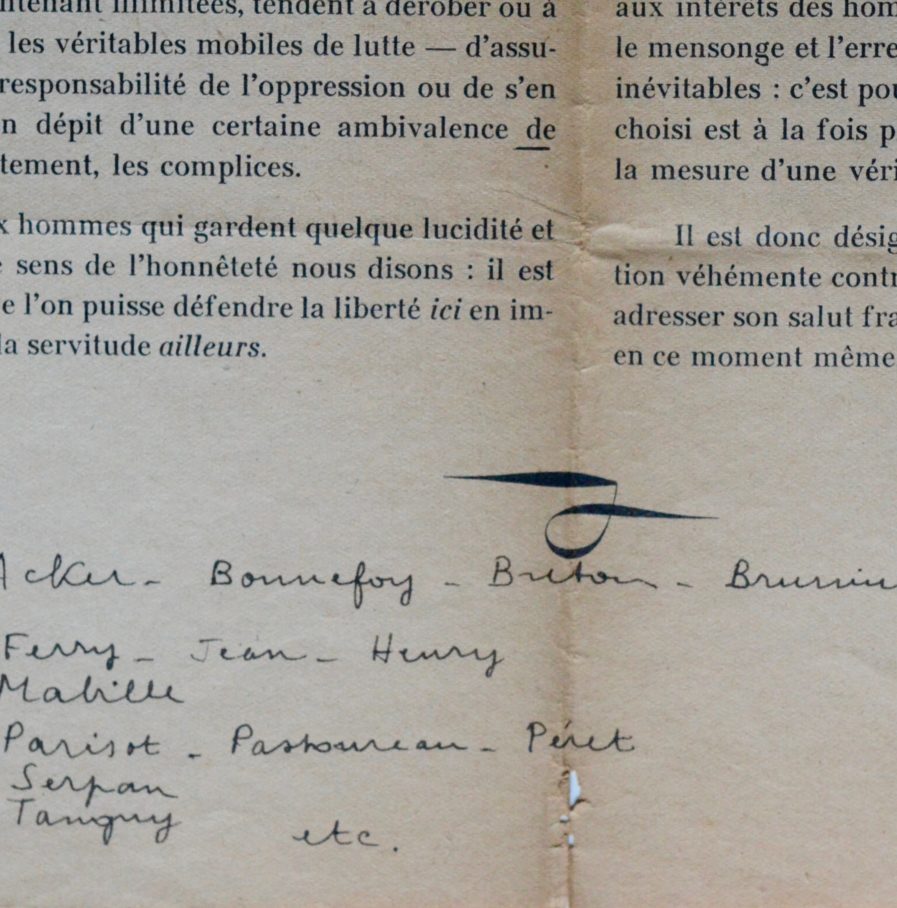 intenant illimitées, tendent à dérober ou à
les véritables mobiles de lutte — d'assu-
responsabilité de l'oppression ou de s'en
n dépit d'une certaine ambivalence de
tement, les complices.
x hommes qui gardent quelque lucidité et
sens de l'honnêteté nous disons : il est
e l'on puisse défendre la liberté ici en im-
la servitude ailleurs.
aux intérêts des hom
le mensonge et l'erre
inévitables : c'est pou
choisi est à la fois p
la mesure d'une véri
Il est donc désig
tion véhémente contr
adresser son salut fra
en ce moment même
Acker - Bonnefoy - Breton - Bruniu
Ferry - Jean - Henry
Mabille
Parisot - Pastoureau - Péret
Serpan
Tanguy etc.